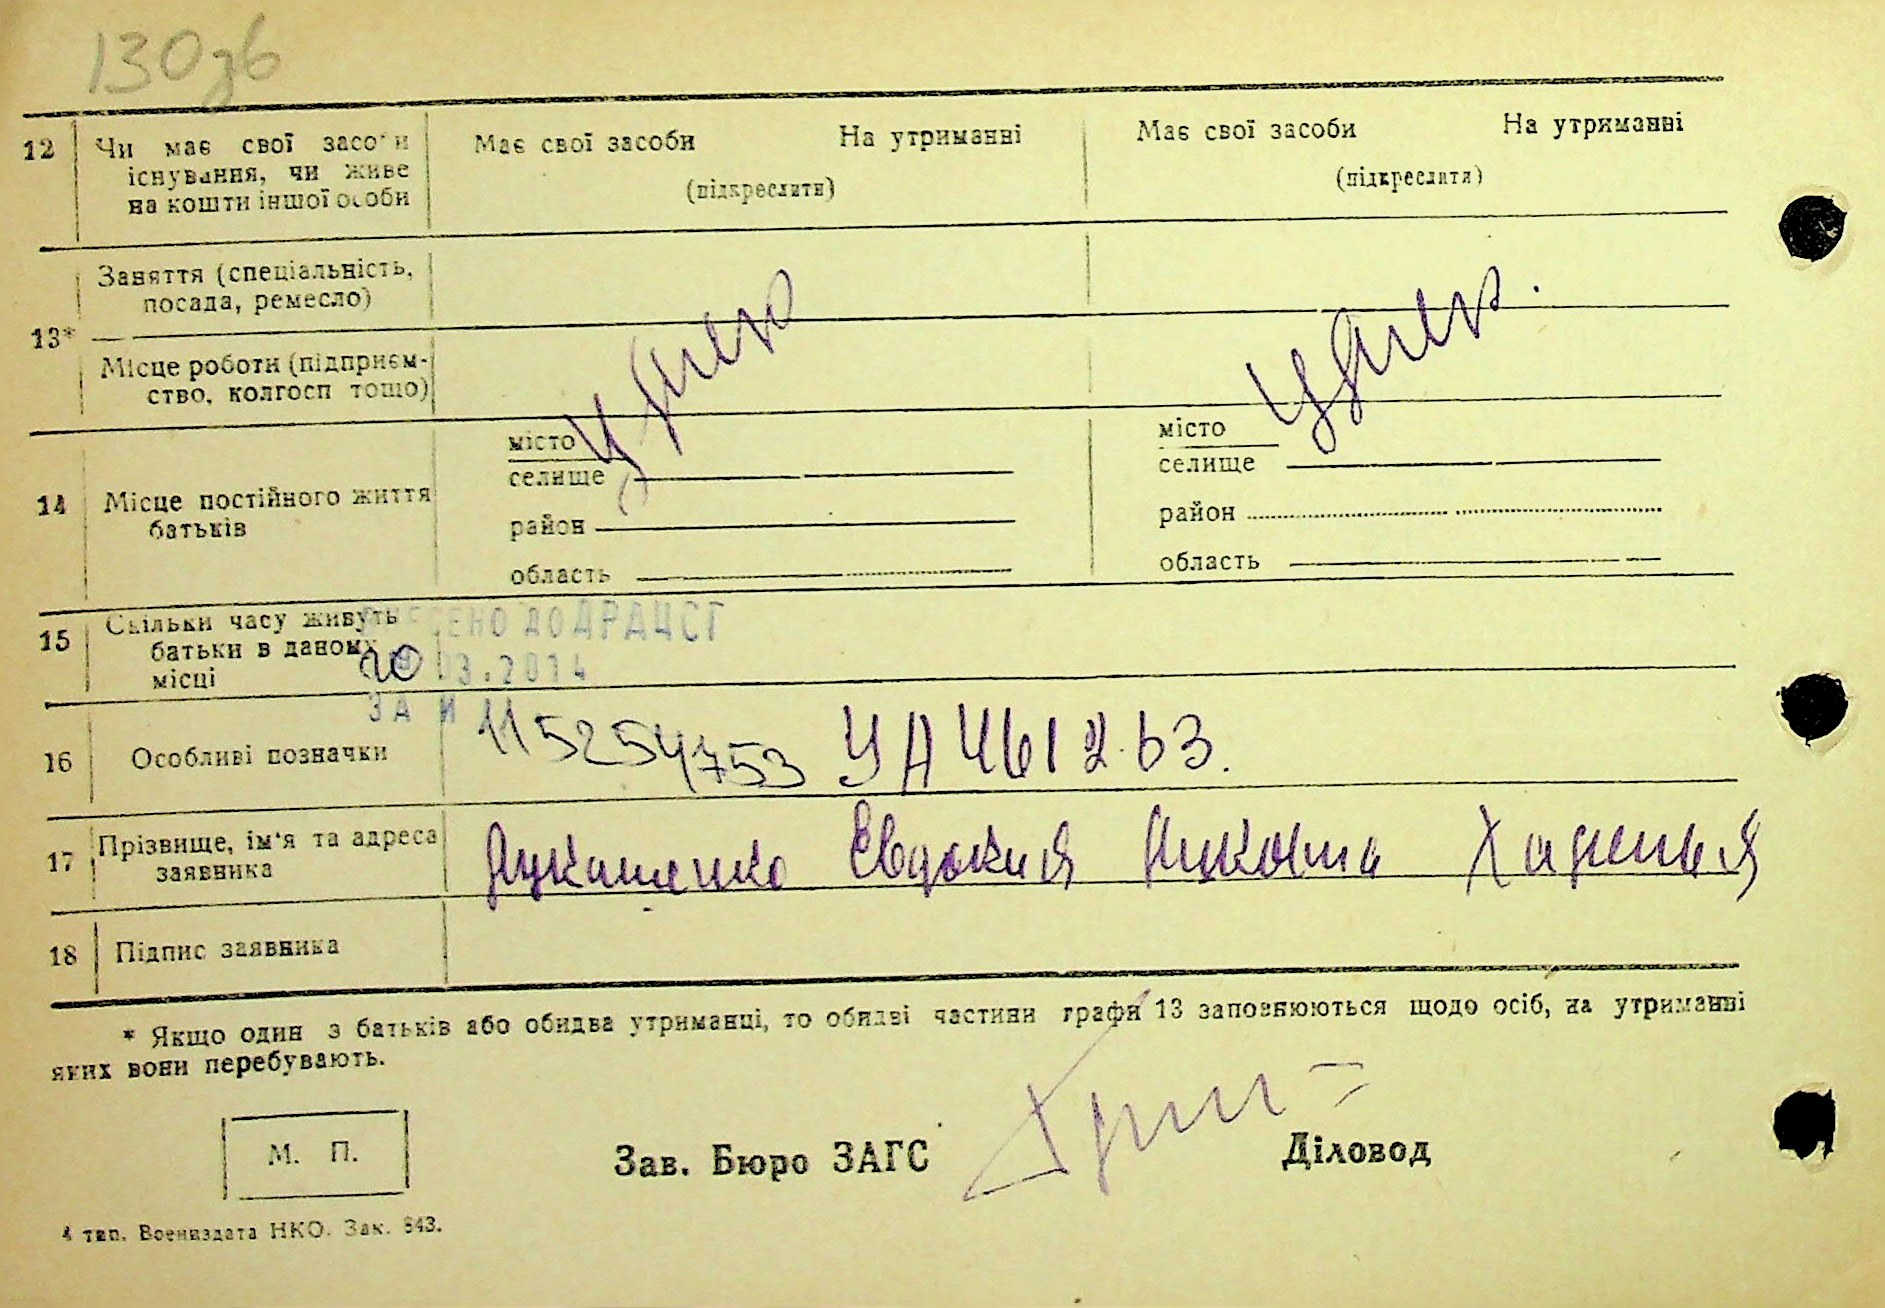 130зв
12 Чи має свої засоби Має свої засоби На утриманні Має свої засоби На утриманні
існування, чи живе (підкреслити) (підкреслити)
на кошти іншої особи
Заняття (спеціальність,
посада, ремесло)
13*
Місце роботи (підприєм-
ство, колгосп тощо)
місто місто
селище селище
14 Місце постійного життя
батьків
район район
область область
15 Скільки часу живуть
батьки в даному
місці
ВНЕСЕНО ДО ДРАЦСГ
20 03.2014
ЗА №
16 Особливі позначки 115254753 УА 461263.
17 Прізвище, ім'я та адреса Лукашенко Евдокия
заявника
18 Підпис заявника
* Якщо один з батьків або обидва утриманці, то обидві частини графи 13 заповнюються щодо осіб, на утриманні
яких вони перебувають.
М. П.
Зав. Бюро ЗАГС Діловод
4 тип. Воениздата НКО. Зак. 843.